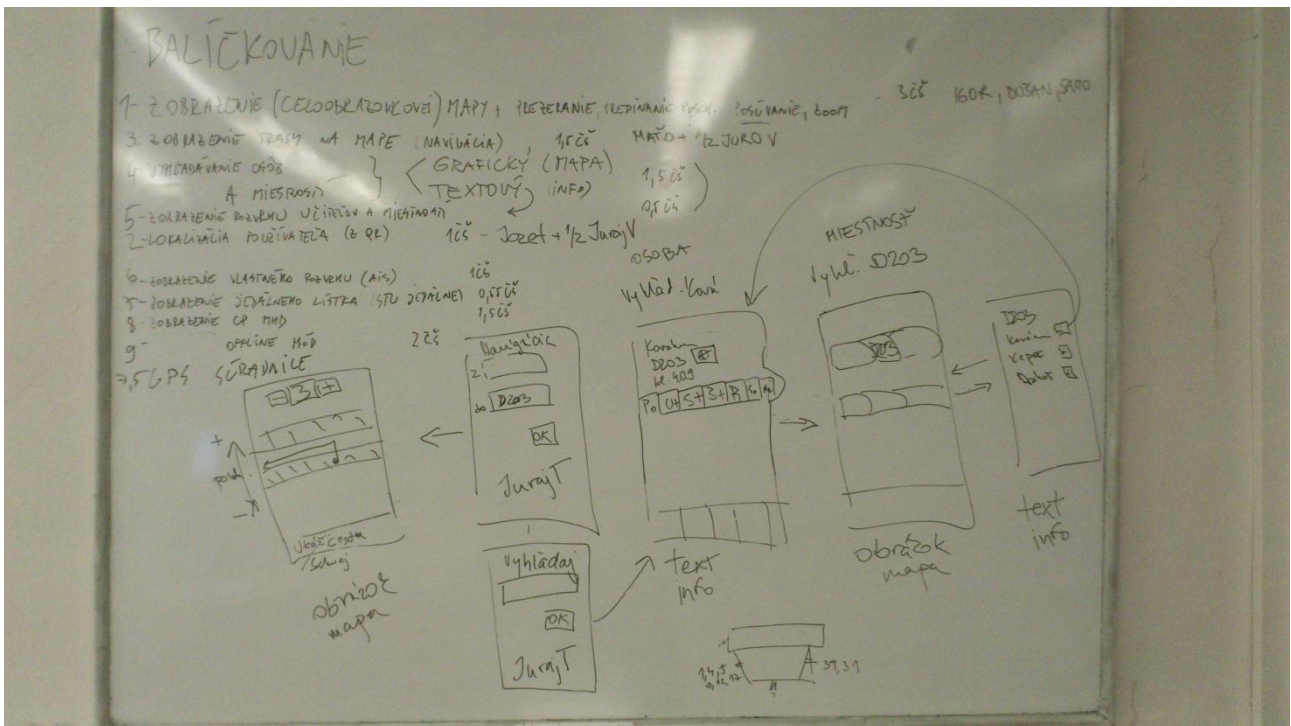 BALÍČKOVANIE
1- ZOBRAZENIE (CELOOBRAZOVKOVEJ) MAPY + PREZERANIE, POSÚVANIE, ZOOM - 3čš IGOR, DUŠAN,
3- ZOBRAZENIE TRASY NA MAPE (NAVIGÁCIA) 1,5čš MAŤO + 1/2 JURO V
4- VYHĽADÁVANIE OSÔB
A MIESTNOSTÍ
GRAFICKÝ (MAPA) 1,5čš
TEXTOVÝ (INFO) 0,5čš
5- ZOBRAZENIE ROZVRHU UČITEĽOV A MIESTNOSTÍ
2- LOKALIZÁCIA POUŽÍVATEĽA (Z QR) 1čš - Jozef + 1/2 Juraj V
6- ZOBRAZENIE VLASTNÉHO ROZVRHU (AIS) 1čš
7- ZOBRAZENIE JEDÁLNEHO LÍSTKA (STU JEDÁLNE)
8- ZOBRAZENIE CP MHD 1,5čš
9- OFFLINE MÓD 2čš
7,5 GPS SÚRADNICE
- 3 +
+
posch.
-
Ukáž cestu
obrázok
mapa
Navigácia
z
do D203
OK
Juraj T
Vyhľadaj
OK
Juraj T
OSOBA
D203
Po Ut St Št Pi So Ne
text
info
MIESTNOSŤ
Vyhľ. D203
D203
obrázok
mapa
D203
text
info